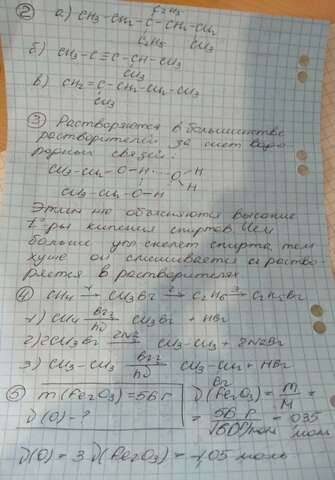 ② а) CH₃-CH₂-C-CH₂-CH₂
C₂H₅
C₂H₅ CH₃
б) CH₃-C≡C-CH-CH₃
CH₃
в) CH₂=C-CH₂-CH₂-CH₃
CH₃
③ Растворяются в большинстве
растворителей за счет водо-
родных связей.
CH₃-CH₂-O-H...O H
H
CH₃-CH₂-O-H
Этим же объясняются высокие
t°ры кипения спиртов. Чем
больше угл скелет спирта, тем
хуже он смешивается и раство-
ряется в растворителях.
④ CH₄ →¹ CH₃Br →² C₂H₆ →³ C₂H₅Br
1) CH₄ Br₂/hν → CH₃Br + HBr
2) 2CH₃Br 2Na → CH₃-CH₃ + 2NaBr
3) CH₃-CH₃ Br₂/hν → CH₃-CH₂ + HBr
Br
⑤ m(Fe₂O₃) = 56 г
ν(O) - ?
ν(Fe₂O₃) = m/M =
= 56 г / 160 г/моль = 0,35 моль
ν(O) = 3 ν(Fe₂O₃) = 1,05 моль